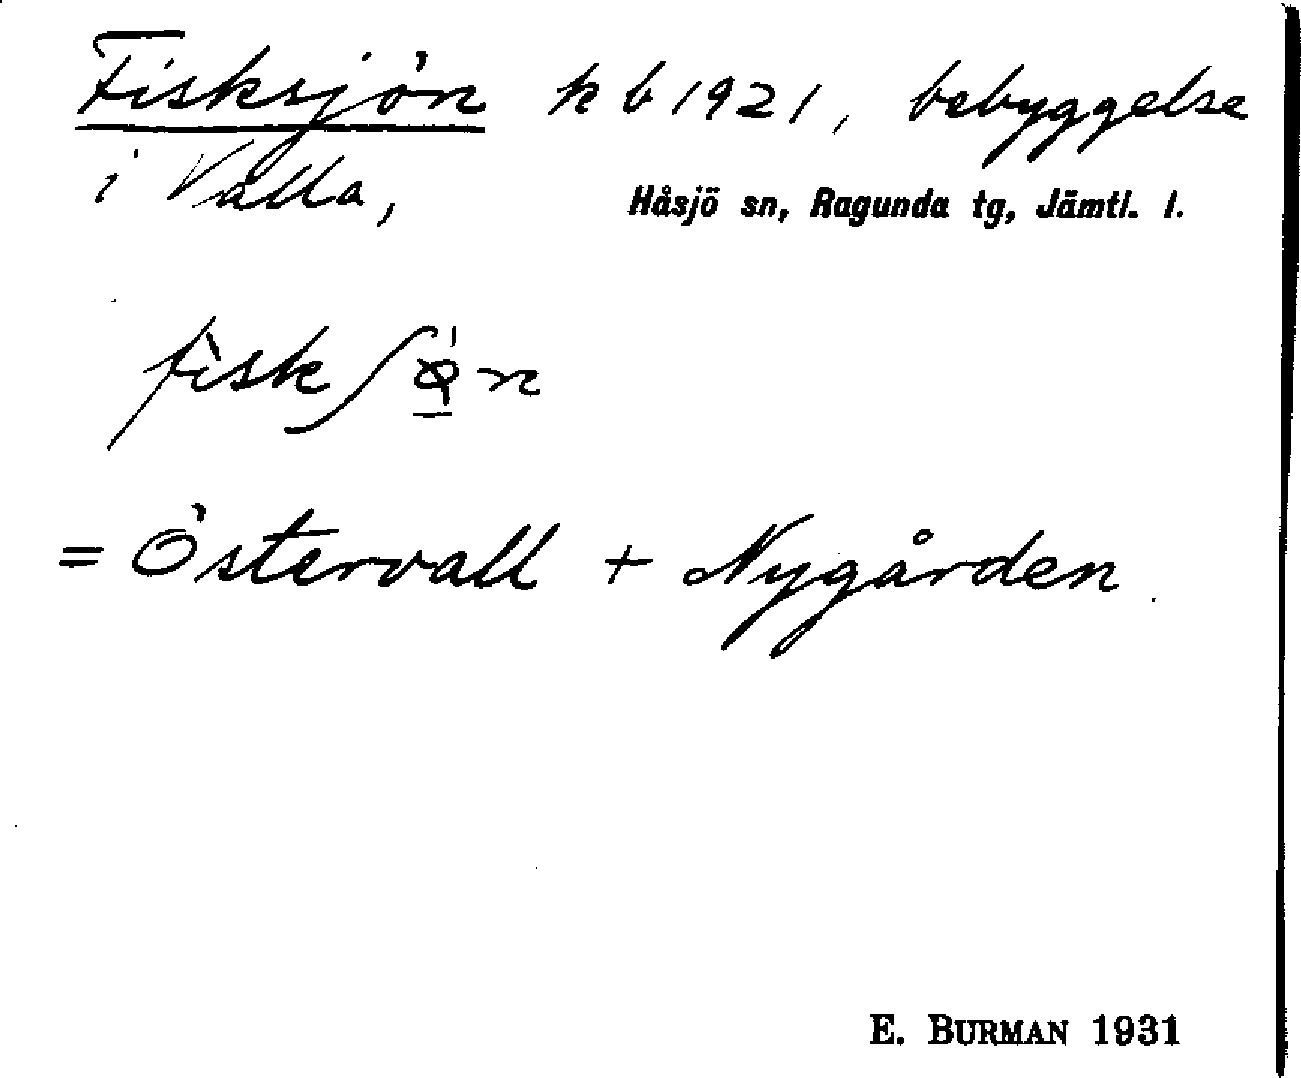 Fisksjön kb 1921, bebyggelse
i Valla, Håsjö sn, Ragunda tg, Jämtl. l.
= Östervall + Nygården
E. BURMAN 1931